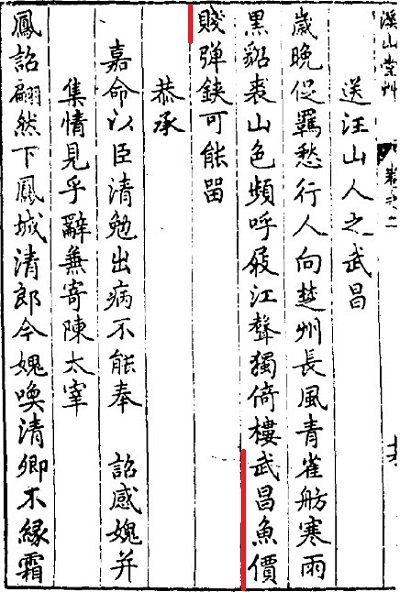 溪山堂艸 卷之二
送汪山人之武昌
歲晚促羈愁行人向楚州長風青雀舫寒雨
黑貂裘山色頻呼屐江聲獨倚樓武昌魚價
賤彈鋏可能留
恭承
嘉命以臣清勉出病不能奉 詔感媿并
集情見乎辭兼寄陳太宰
鳳詔翩然下鳳城清郎今媿喚清卿不緣霜